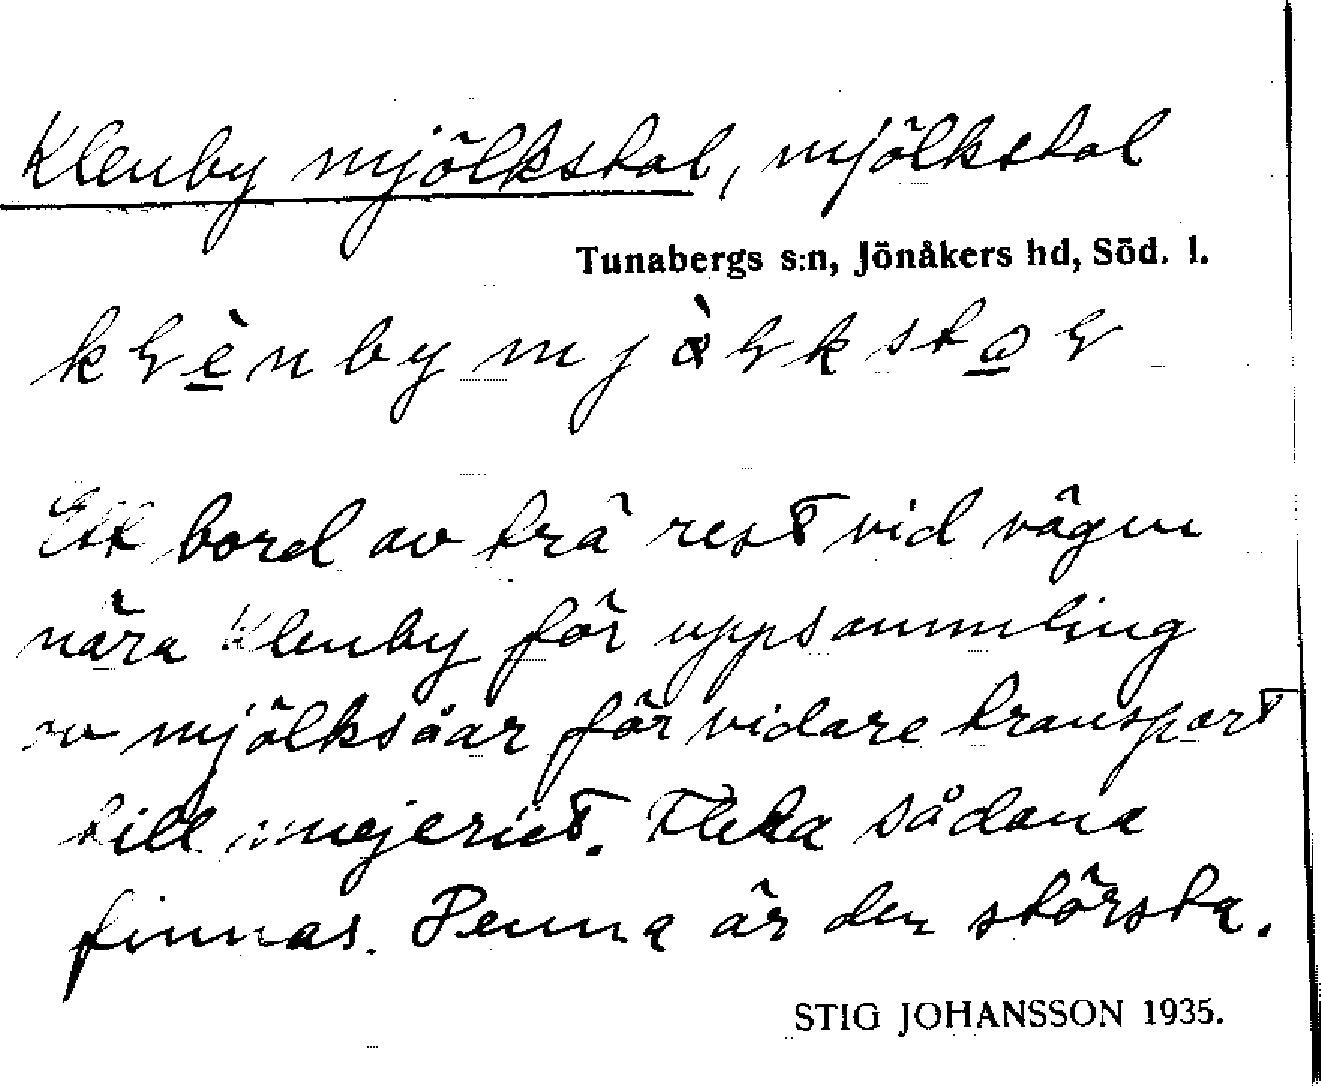 Klenby mjölkstal, mjölkstal
Tunabergs s:n, Jönåkers hd, Söd. l.
Ett bord av trä rest vid vägen
nära Klenby för uppsamling
av mjölksåar för vidare transport
till mejeriet. Flera sådana
finnas. Denna är den största.
STIG JOHANSSON 1935.